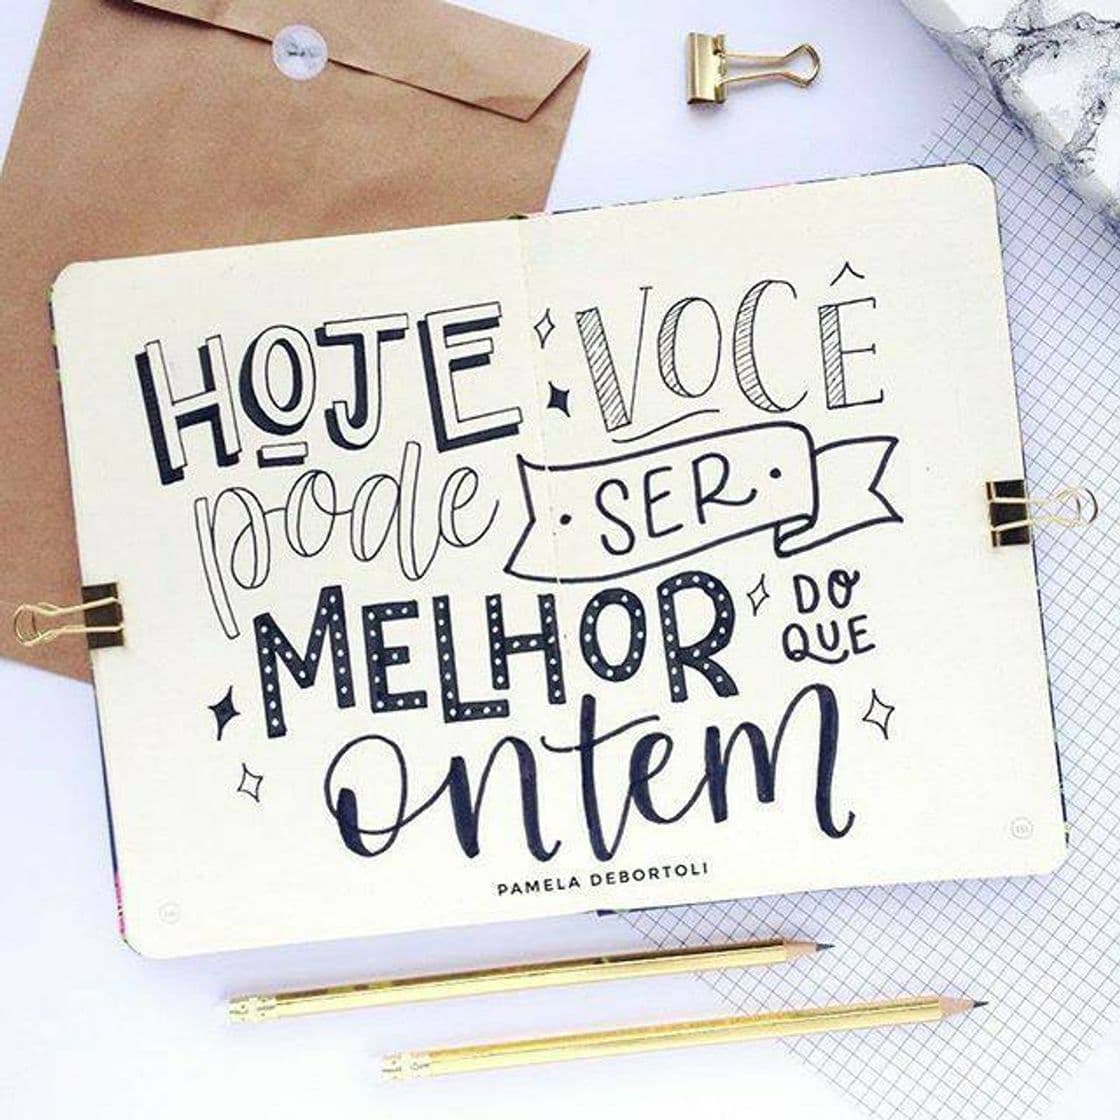 HOJE VOCÊ
pode SER
MELHOR DO
QUE
ontem
PAMELA DEBORTOLI